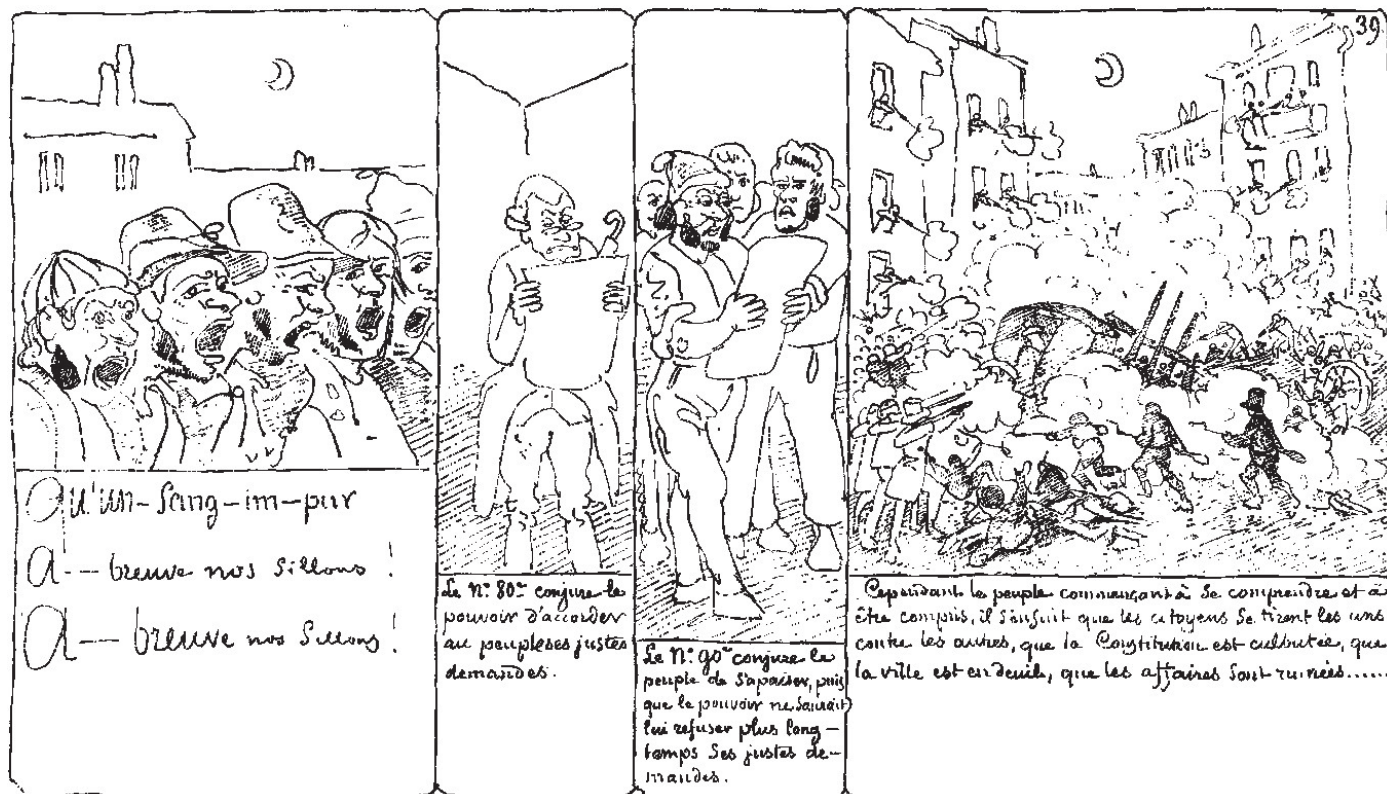 39
Qu'un-Sang-im-pur
A-- breuve nos Sillons !
A-- breuve nos Sillons !
Le N.° 80.e conjure le
pouvoir d'accorder
au peuple ses justes
demandes.
Le N.° 90.e conjure le
peuple de s'apaiser, puis
que le pouvoir ne saurait
lui refuser plus long-
temps ses justes de-
mandes.
Cependant le peuple commençant à se comprendre et à
être compris, il s'ensuit que les citoyens se tirent les uns
contre les autres, que la Constitution est culbutée, que
la ville est en deuil, que les affaires sont ruinées......